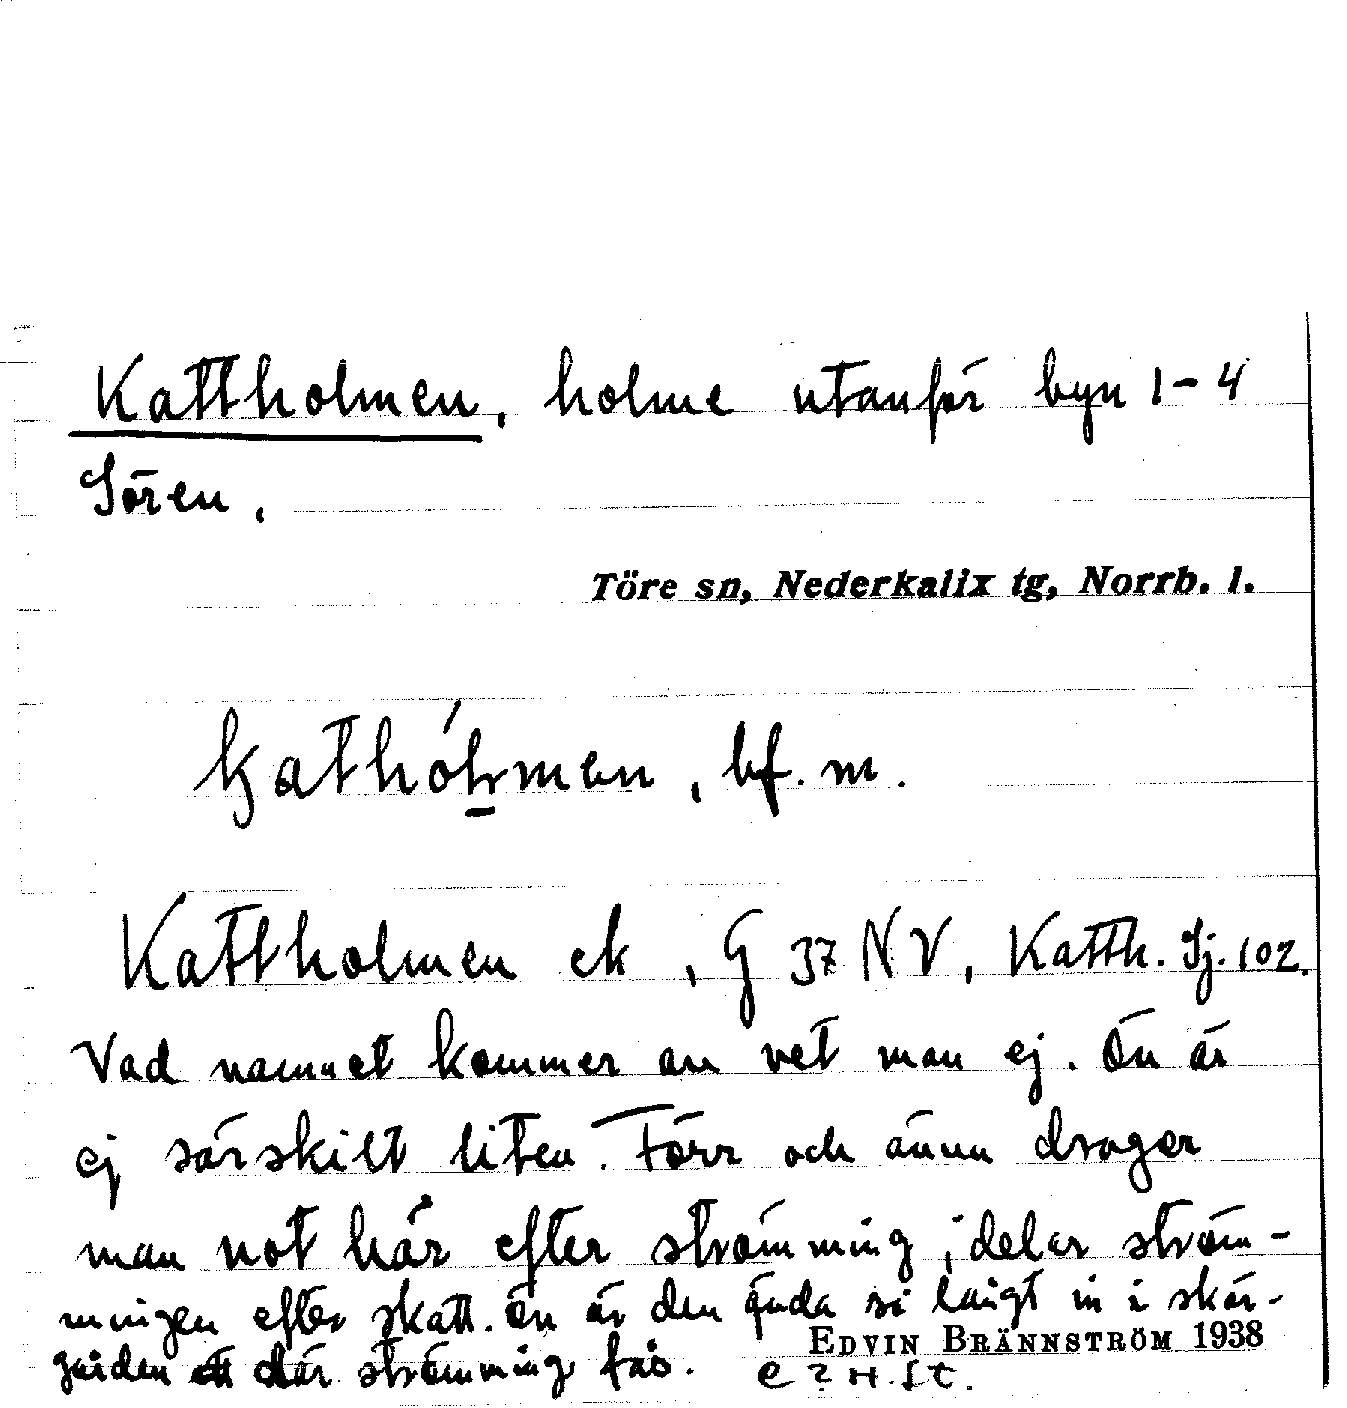 Kattholmen, holme utanför byn 1-4
Sören.
Töre sn, Nederkalix tg, Norrb. l.
bf. m.
Kattholmen ek, G 37 NV, Katth. Sj. 102.
Vad namnet kommer av vet man ej. Ön är
ej särskilt liten. Förr och ännu drager
man not här efter strömming, delar ström-
mingen efter skatt. Ön är den enda så långt in i skär-
gården där strömming fås.
EDVIN BRÄNNSTRÖM 1938